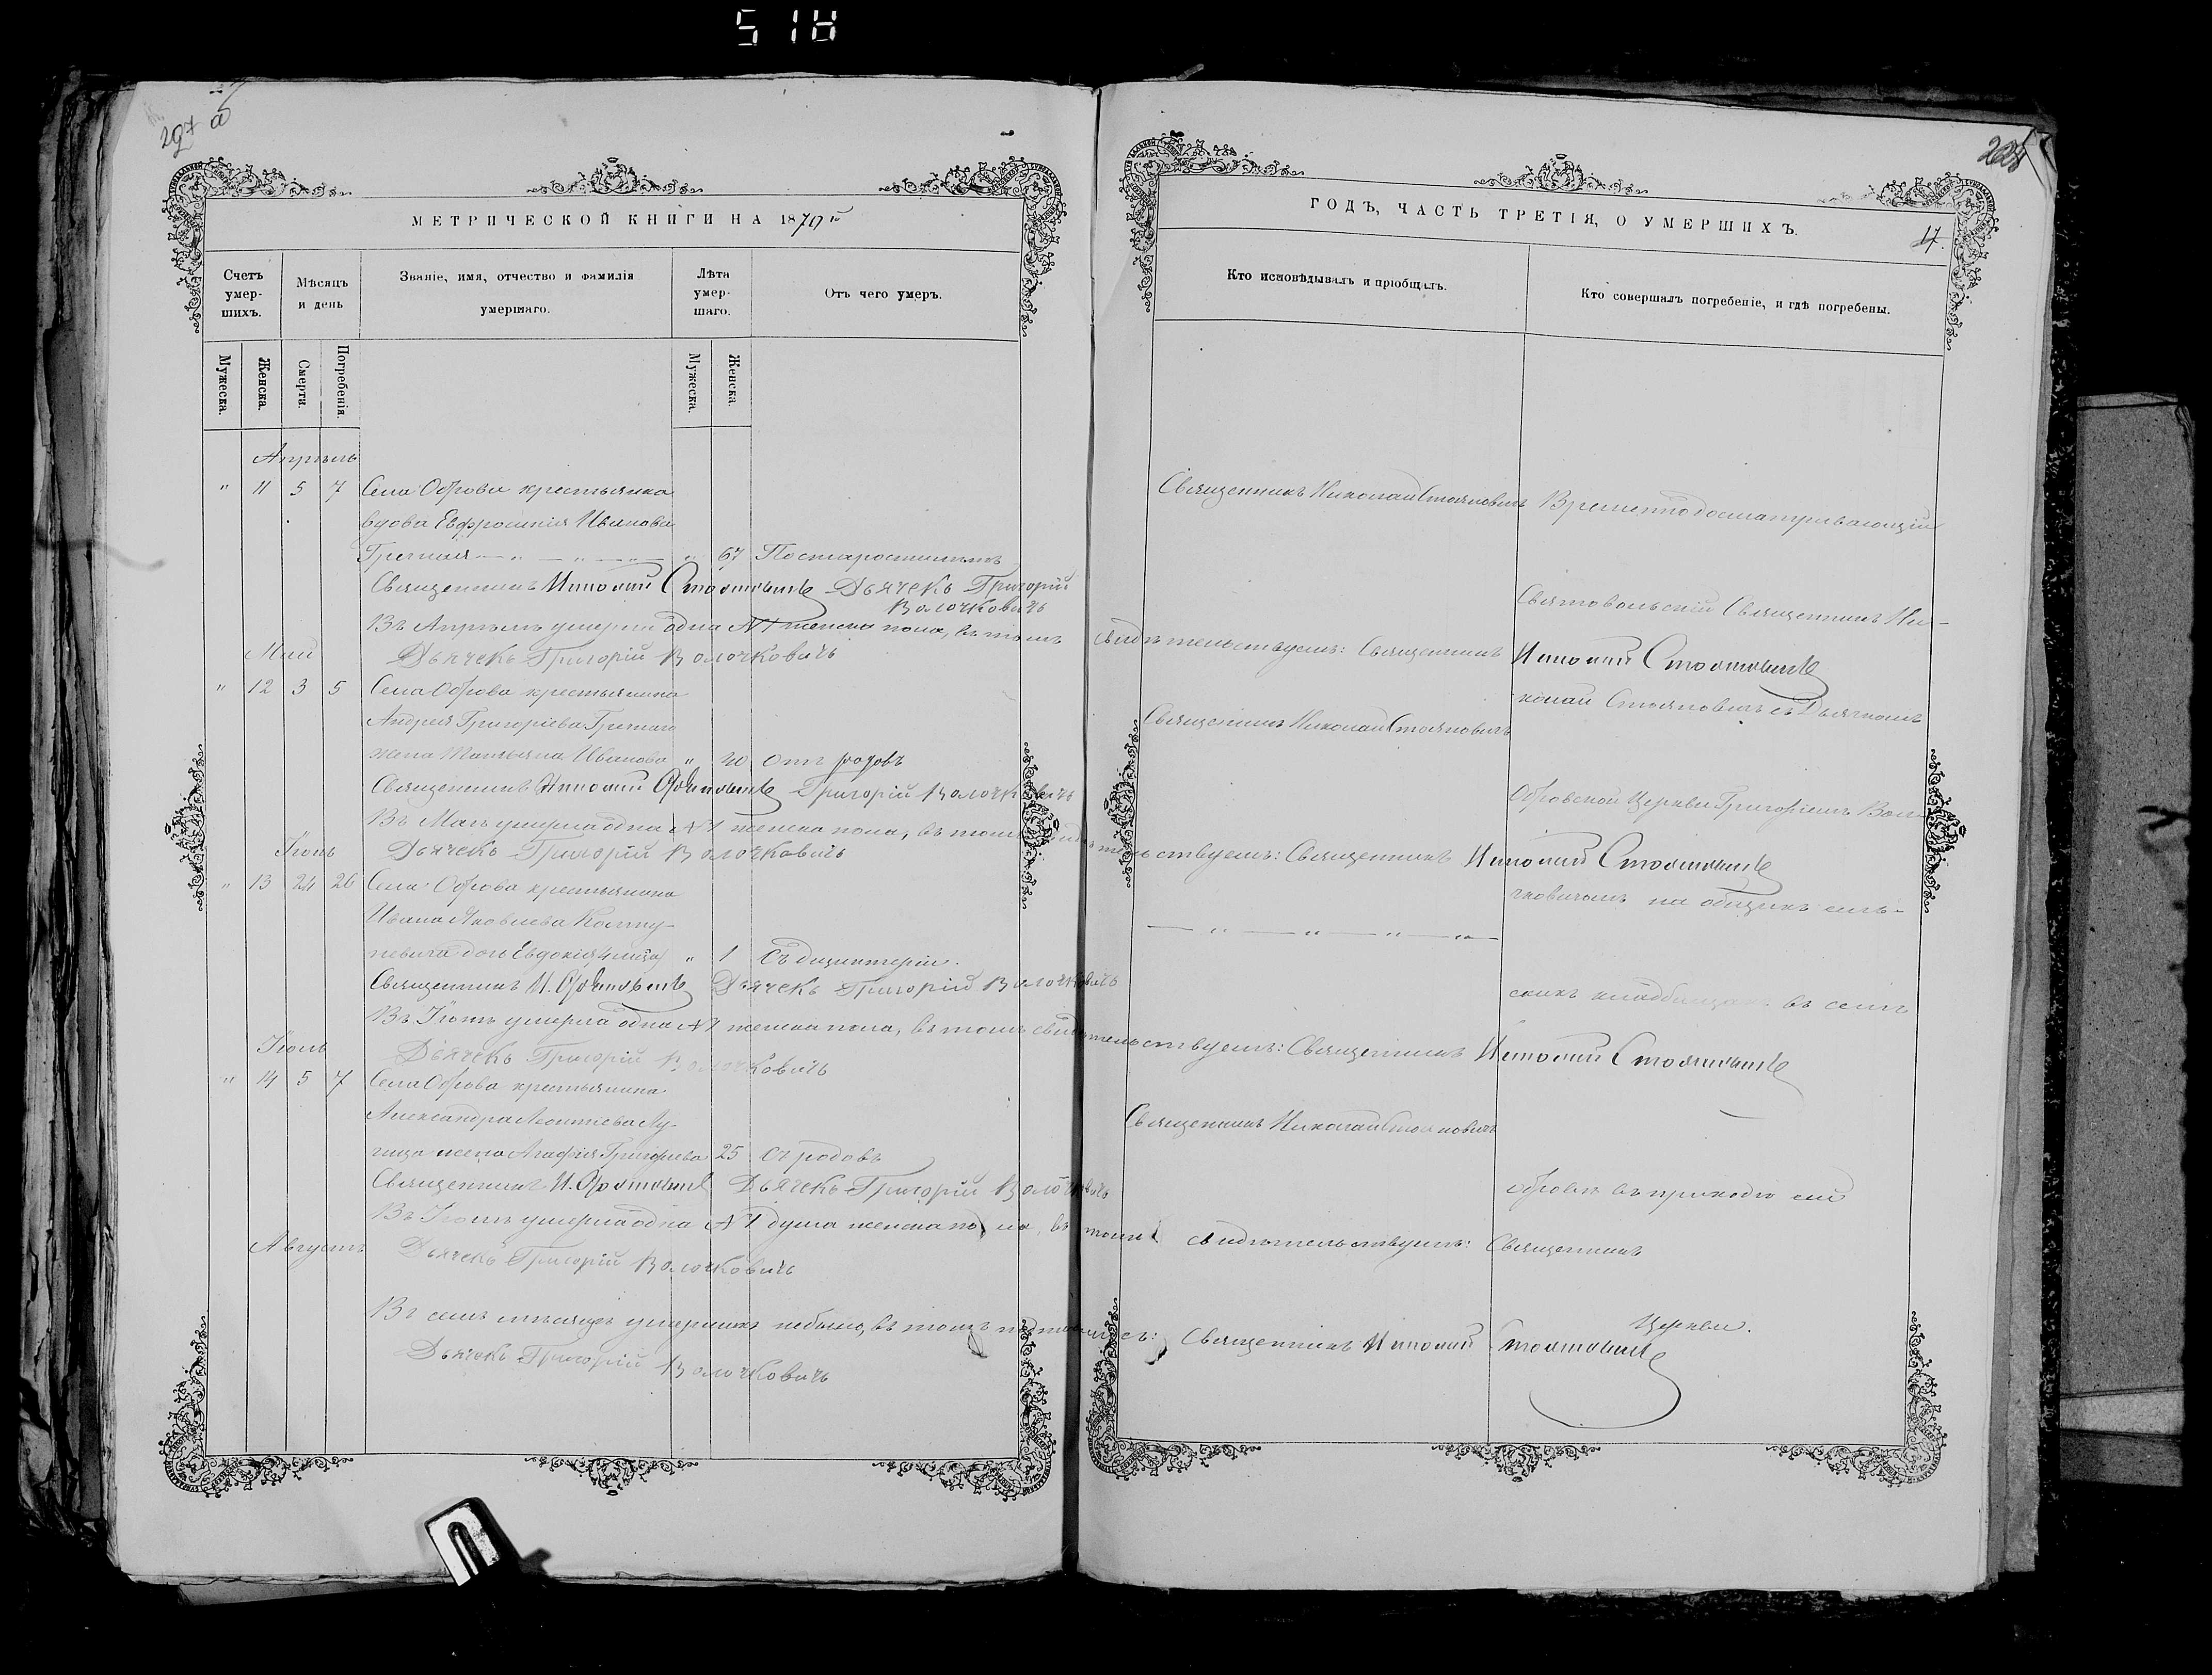 518
МЕТРИЧЕСКОЙ КНИГИ НА 1870 й
Счетъ умер-шихъ.
Мѣсяцъ и день
Званіе, имя, отчество и фамилія умершаго.
Лѣта умер-шаго.
Отъ чего умеръ.
Мужеска.
Женска.
Смерти.
Погребенія.
Мужеска.
Женска.
Апрѣль
" 11 5 7 Села Оброва крестьянка
вдова Евфросинія Иванова
" 67 По старости лѣтъ
Священникъ Николай Стояновичъ Дьячекъ Григорій
Волочковичъ
Въ Апрѣлѣ умерла одна № 1 женска пола, въ томъ
Май Дьячекъ Григорій Волочковичъ
" 12 3 5 Села Оброва крестьянина
Андрея Григоріева Гречнаго
жена Татьяна Иванова " 40 Отъ родовъ
Священникъ Николай Стояновичъ Григорій Волочковичъ
Въ Маѣ умерла одна № 1 женска пола, въ томъ свидѣ
Іюнь Дьячекъ Григорій Волочковичъ
" 13 24 26 Села Оброва крестьянина
Ивана Яковлева
дочь Евдокія " 1 Отъ дизинтеріи.
Священникъ Н. Стояновичъ Дьячекъ Григорій Волочковичъ
Въ Іюнѣ умерла одна № 1 женска пола, въ томъ свидѣ
Іюль Дьячекъ Григорій Волочковичъ
" 14 5 7 Села Оброва крестьянина
Александра Леонтіева
жена Агафія Григорьева 25 Отъ родовъ
Священникъ Н. Стояновичъ Дьячекъ Григорій Волочковичъ
Въ Іюлѣ умерла одна № 1 душа женска пола, въ томъ
Августъ Дьячекъ Григорій Волочковичъ
Въ семъ мѣсяцѣ умершихъ небыло, въ томъ подписались:
Дьячекъ Григорій Волочковичъ
ГОДЪ, ЧАСТЬ ТРЕТІЯ, О УМЕРШИХЪ.
17.
Кто исповѣдывалъ и пріобщалъ.
Кто совершалъ погребеніе, и гдѣ погребены.
Священникъ Николай Стояновичъ Временно досматривающій
Святовольскій Священникъ Ни-
свидѣтельствуемъ: Священникъ Николай Стояновичъ
колай Стояновичъ съ Дьячкомъ
Священникъ Николай Стояновичъ
Обровской Церкви Григоріемъ Воло-
тельствуемъ: Священникъ Николай Стояновичъ
чковичомъ на общихъ сель-
скихъ кладбищахъ въ селѣ
тельствуемъ: Священникъ Николай Стояновичъ
Священникъ Николай Стояновичъ
Обровѣ въ приходѣ сей
свидѣтельствуемъ: Священникъ
Церкви.
Священникъ Николай Стояновичъ